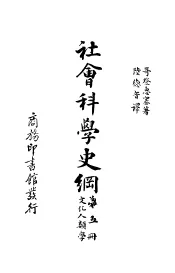 哥登惠塞著
陸德音譯
社會科學史綱
第五冊
文化人類學
商務印書館發行